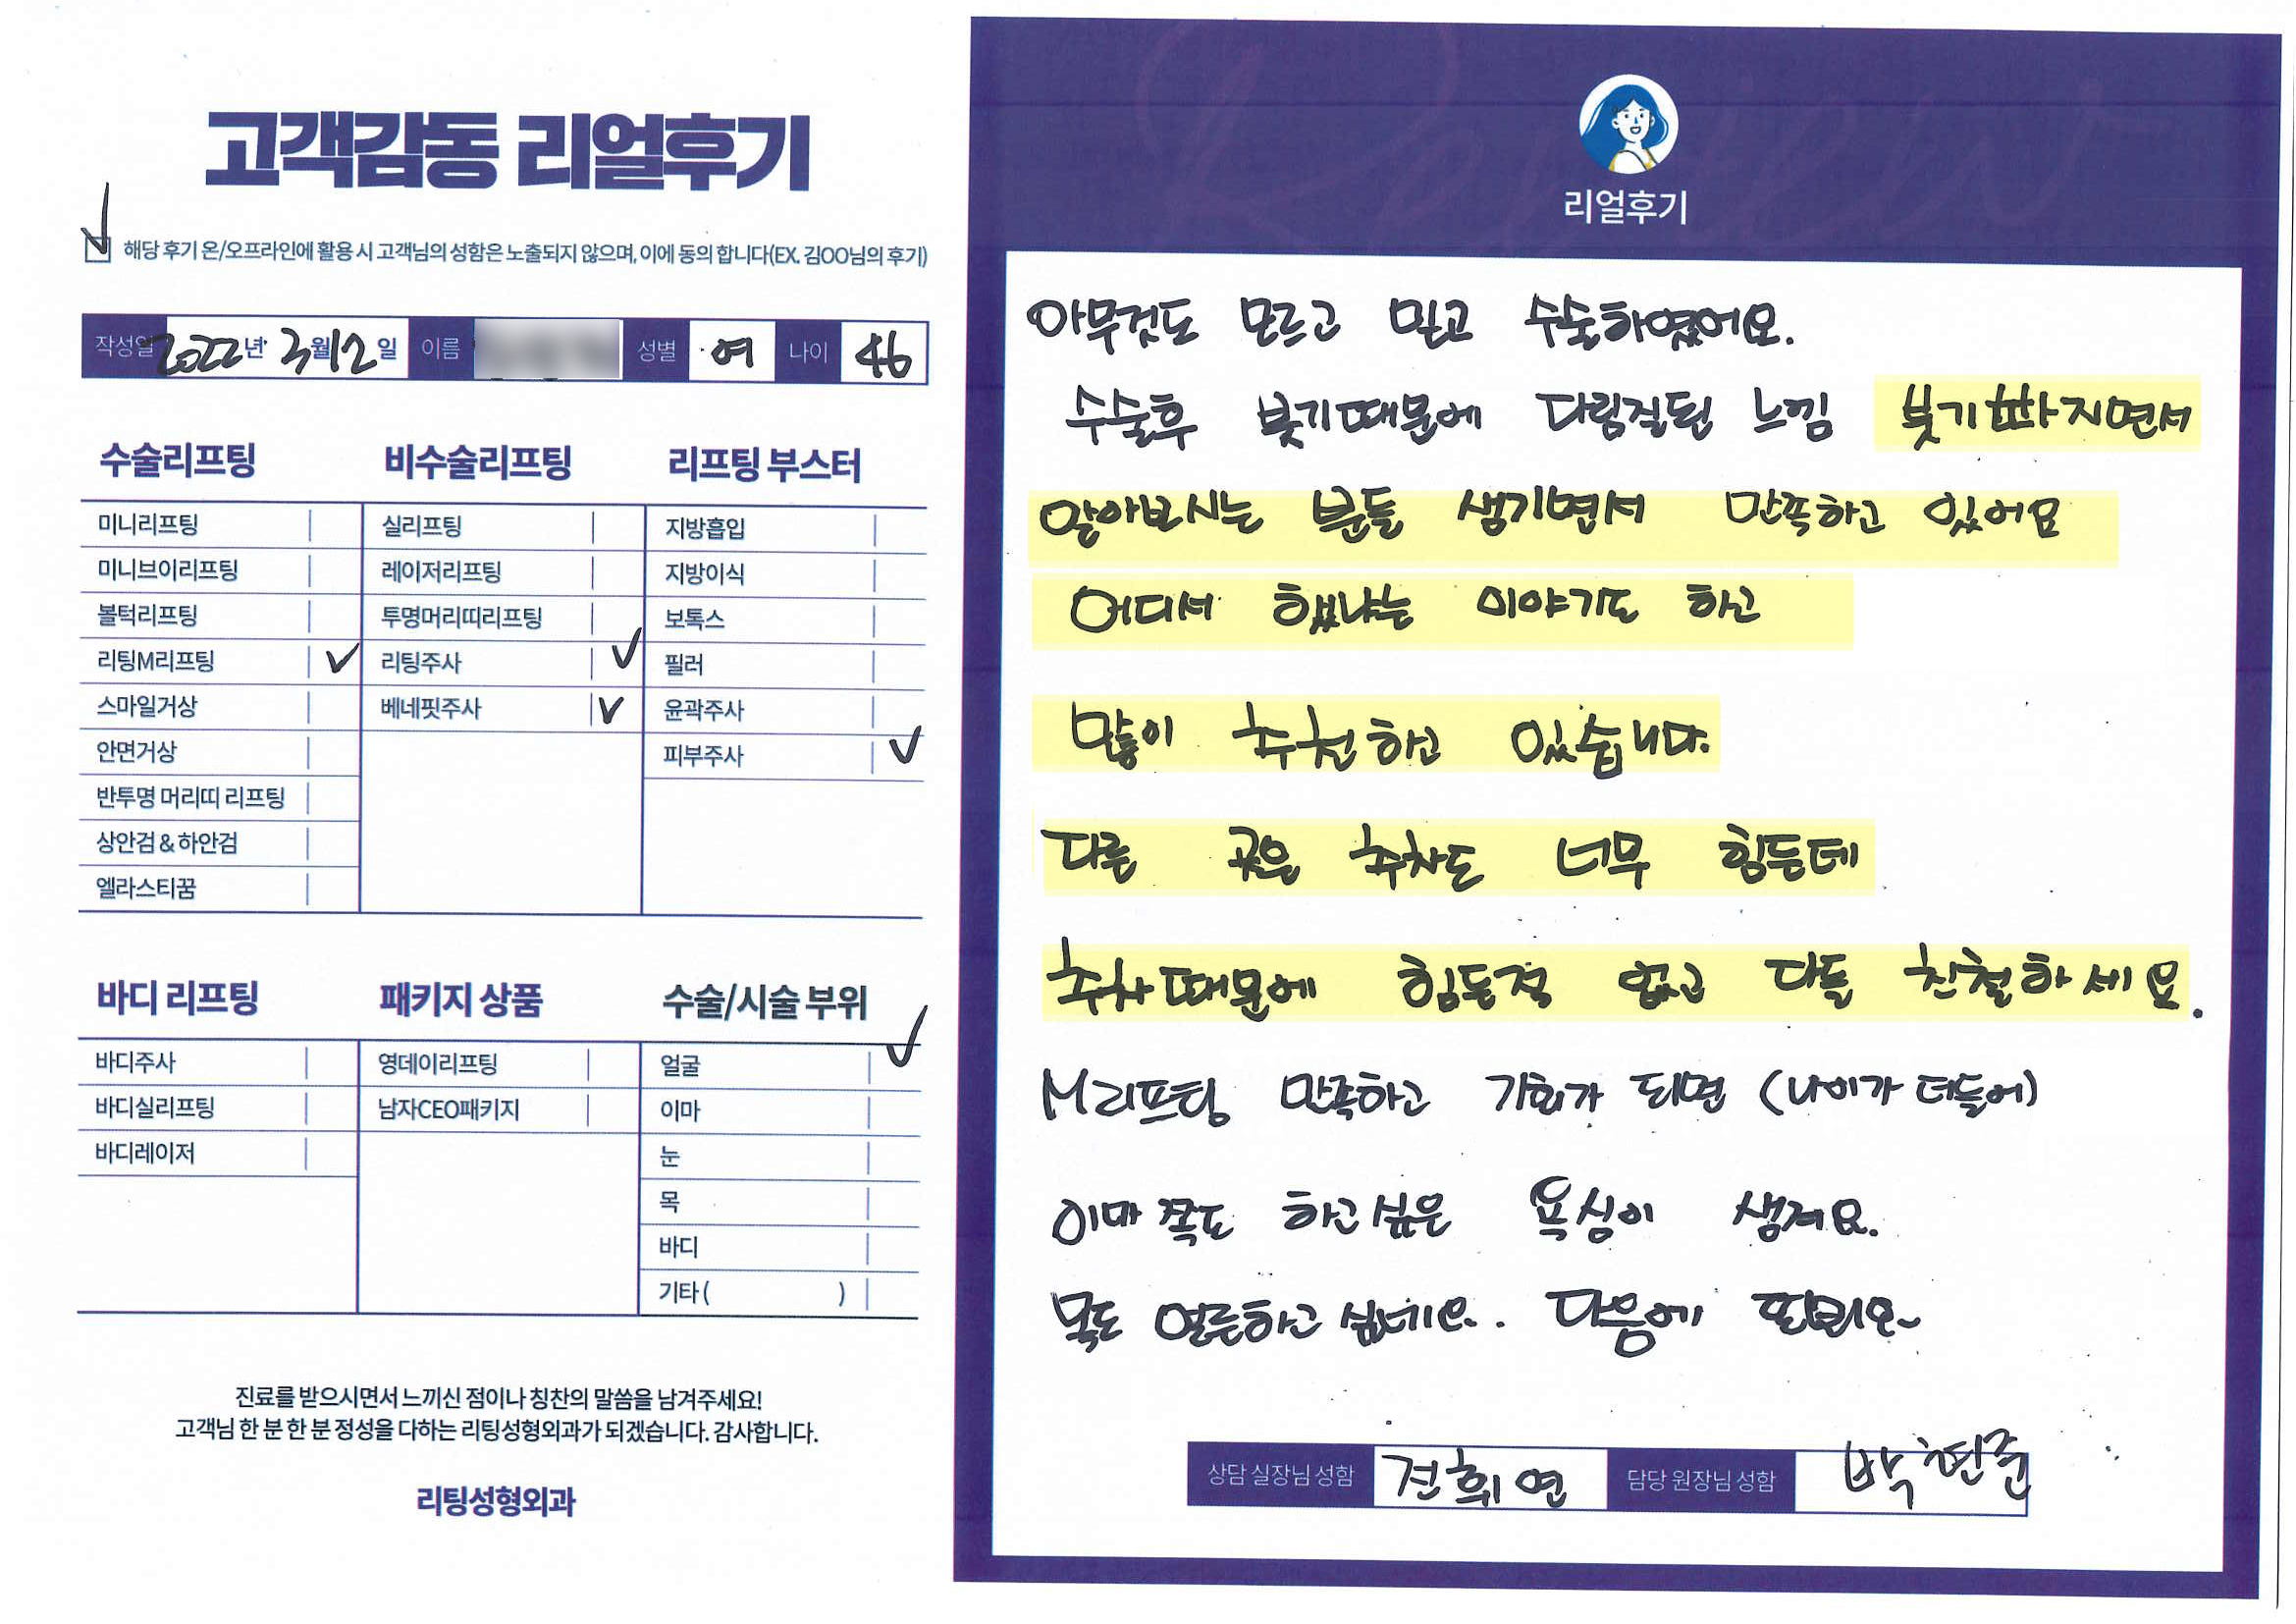 고객감동 리얼후기
해당 후기 온/오프라인에 활용 시 고객님의 성함은 노출되지 않으며, 이에 동의 합니다(EX. 김OO님의 후기)
작성일 2022년 3월 12일 이름 성별 여 나이 46
수술리프팅
미니리프팅
미니브이리프팅
볼턱리프팅
리팅M리프팅
스마일거상
안면거상
반투명 머리띠 리프팅
상안검 & 하안검
엘라스티꿈
비수술리프팅
실리프팅
레이저리프팅
투명머리띠리프팅
리팅주사
베네핏주사
리프팅 부스터
지방흡입
지방이식
보톡스
필러
윤곽주사
피부주사
바디 리프팅
바디주사
바디실리프팅
바디레이저
패키지 상품
영데이리프팅
남자CEO패키지
수술/시술 부위
얼굴
이마
눈
목
바디
기타 ( )
진료를 받으시면서 느끼신 점이나 칭찬의 말씀을 남겨주세요!
고객님 한 분 한 분 정성을 다하는 리팅성형외과가 되겠습니다. 감사합니다.
리팅성형외과
리얼후기
아무것도 모르고 믿고 수술하였어요.
수술후 붓기때문에 다림질된 느낌 붓기빠지면서
알아보시는 분들 생기면서 만족하고 있어요
어디서 했냐는 이야기도 하고
많이 추천하고 있습니다.
다른 곳은 주차도 너무 힘든데
주차때문에 힘든적 없고 다들 친절하세요.
M리프팅 만족하고 기회가 되면 (나이가 더들어)
이마쪽도 하고싶은 욕심이 생겨요.
목도 얼른하고 싶네요.. 다음에 뵈요~
상담 실장님 성함 전희연 담당 원장님 성함 박현준